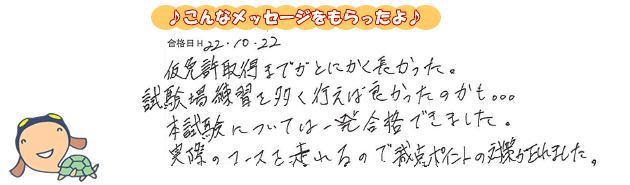 ♪こんなメッセージをもらったよ♪
合格日 H22.10.22
仮免許取得までがとにかく長かった。
試験場練習を多く行えば良かったのかも。。。
本試験については一発合格できました。
実際のコースを走れるので減点ポイントの対策が立れました。